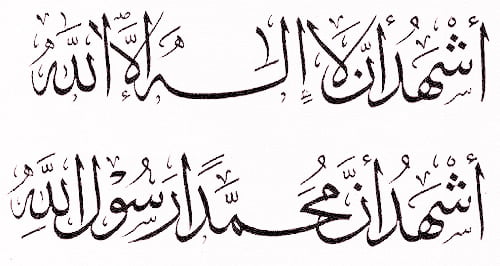 أشهد أن لا إله إلا الله
أشهد أن محمدًا رسول الله